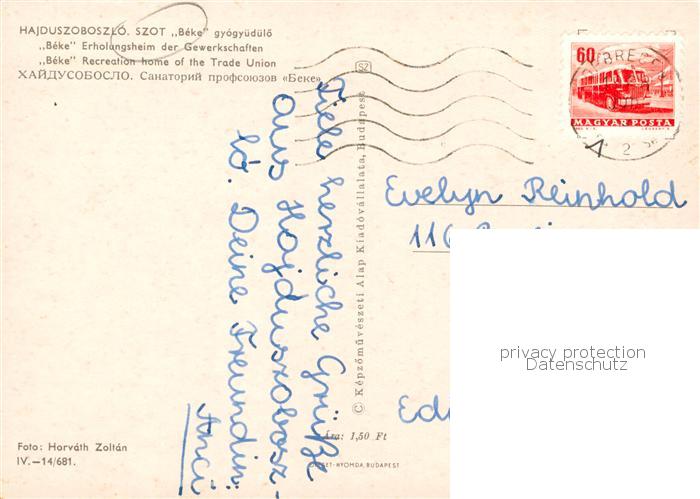 HAJDUSZOBOSZLÓ. SZOT „Béke” gyógyüdülő
„Béke” Erholungsheim der Gewerkschaften
„Béke” Recreation home of the Trade Union
ХАЙДУСОБОСЛО. Санаторий профсоюзов «Беке»
Viele herzliche Grüße
aus Hajduszobosz-
ló. Deine Freundin:
Anci
© Képzőművészeti Alap Kiadóvállalata, Budapest
SZ
60
MAGYAR POSTA
Evelyn Reinhold
116
Edi
privacy protection
Datenschutz
Ára: 1,50 Ft
BUDAPEST
Foto: Horváth Zoltán
IV.—14/681.